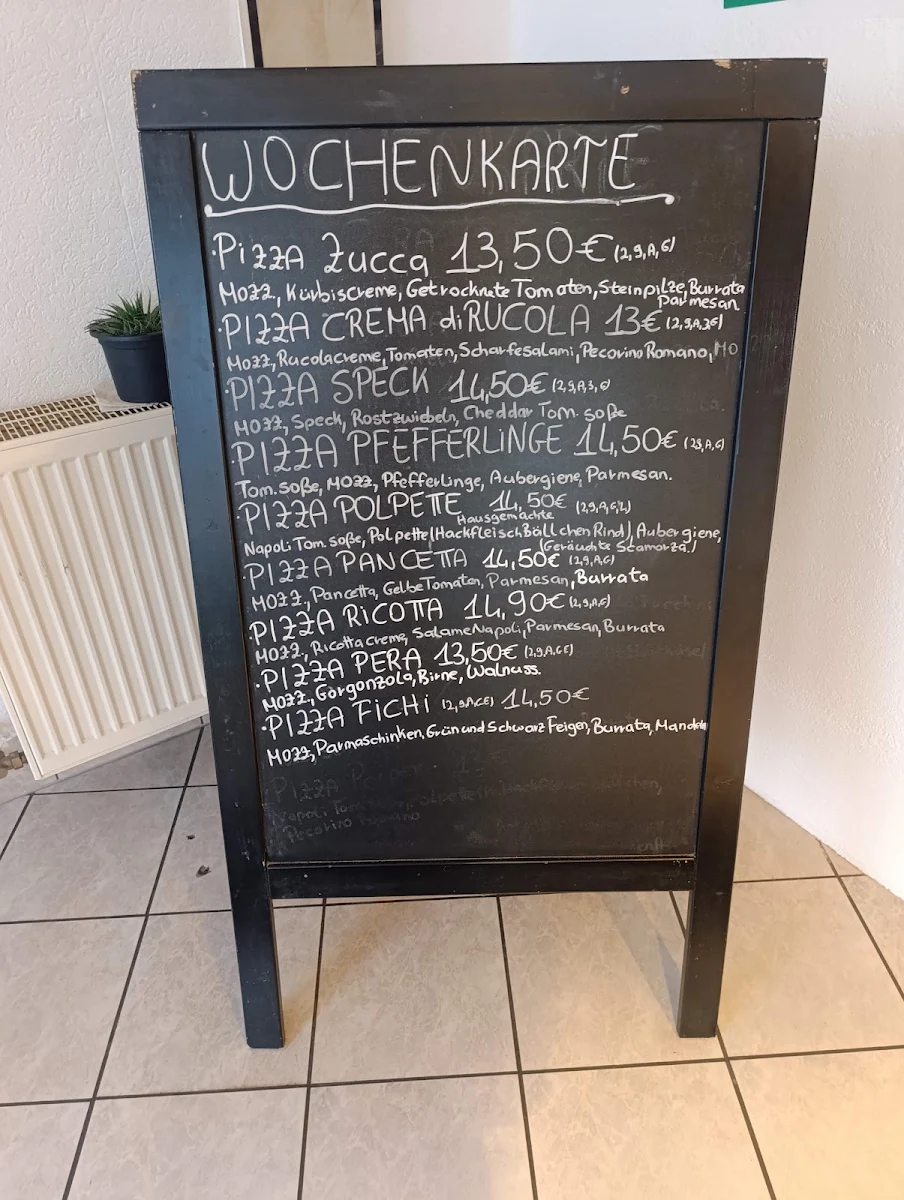 WOCHENKARTE
·Pizza Zucca 13,50€ (2,9,A,G)
Mozz., Kürbiscreme, Getrocknete Tomaten, Steinpilze, Burrata
Parmesan
·PIZZA CREMA di RUCOLA 13€ (2,9,A,3,G)
Mozz., Rucolacreme, Tomaten, Scharfesalami, Pecorino Romano,
·PIZZA SPECK 14,50€ (2,9,A,3,G)
Mozz, Speck, Röstzwiebeln, Cheddar Tom. soße
·PIZZA PFEFFERLINGE 14,50€ (2,9,A,G)
Tom. soße, Mozz, Pfefferlinge, Aubergiene, Parmesan.
·PIZZA POLPETTE 14,50€
Hausgemachte
Napoli Tom. soße, Polpette (Hackfleisch Bällchen Rind), Aubergiene,
(Geräuchte Scamorza.)
·PIZZA PANCETTA 14,50€ (2,9,A,G)
Mozz., Pancetta, Gelbe Tomaten, Parmesan, Burrata
·PIZZA RICOTTA 14,90€ (2,9,A,G)
Mozz., Ricotta creme, Salame Napoli, Parmesan, Burrata
·PIZZA PERA 13,50€ (2,9,A,G,E)
Mozz, Gorgonzola, Birne, Walnuss.
·PIZZA FiCHi (2,9,A,G,E) 14,50€
Mozz, Parmaschinken, Grün und Schwarz Feigen, Burrata, Mandeln